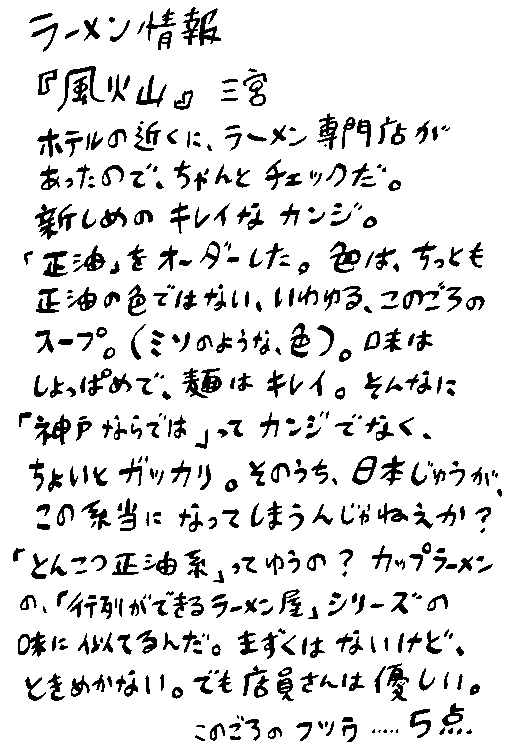 ラーメン情報
『風火山』三宮
ホテルの近くに、ラーメン専門店が
あったので、ちゃんとチェックだ。
新しめのキレイなカンジ。
「正油」をオーダーした。色は、ちっとも
正油の色ではない、いわゆる、このごろの
スープ。(ミソのような、色)。味は
しょっぱめで、麺はキレイ。そんなに
「神戸ならでは」ってカンジでなく、
ちょいとガッカリ。そのうち、日本じゅうが、
この系当になってしまうんじゃねえか?
「とんこつ正油系」ってゆうの?カップラーメン
の、「行列ができるラーメン屋」シリーズの
味に似てるんだ。まずくはないけど、
ときめかない。でも店員さんは優しい。
このごろのフツウ……5点